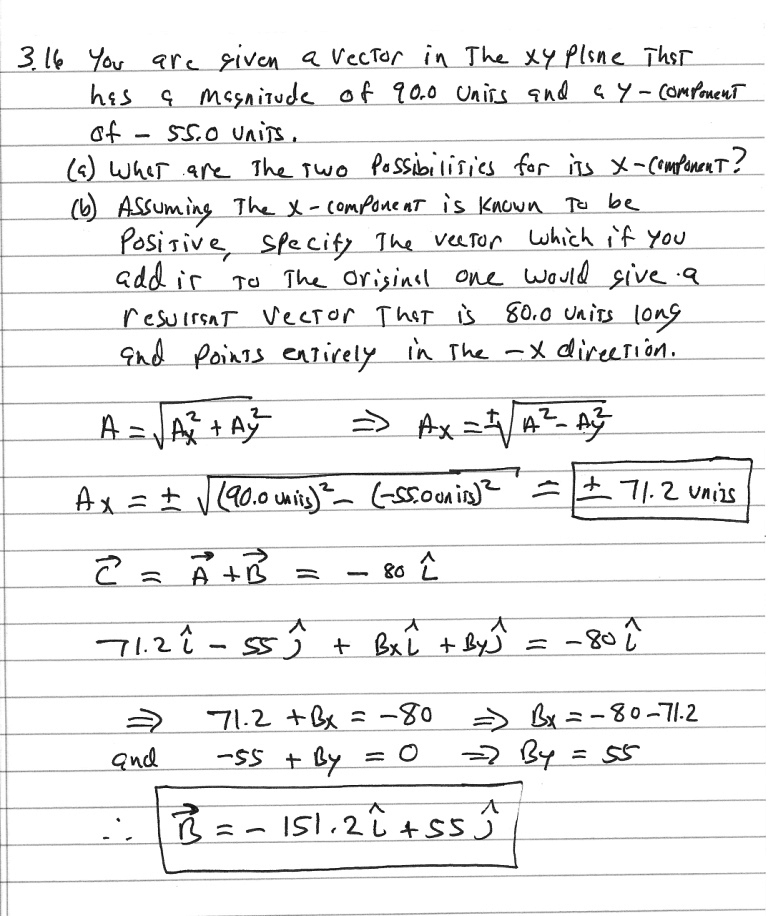 3.16 You are given a vector in the xy plane that
has a magnitude of 90.0 units and a y-component
of - 55.0 units.
(a) What are the two possibilities for its x-component?
(b) Assuming the x-component is known to be
positive, specify the vector which if you
add it to the original one would give a
resultant vector that is 80.0 units long
and points entirely in the -x direction.
A = √(Ax² + Ay²) ⇒ Ax = ±√(A² - Ay²)
Ax = ± √((90.0 units)² - (-55.0 units)²) = ± 71.2 units
C⃗ = A⃗ + B⃗ = - 80 î
71.2 î - 55 ĵ + Bx î + By ĵ = -80 î
⇒ 71.2 + Bx = -80 ⇒ Bx = -80-71.2
and -55 + By = 0 ⇒ By = 55
∴ B⃗ = - 151.2 î + 55 ĵ